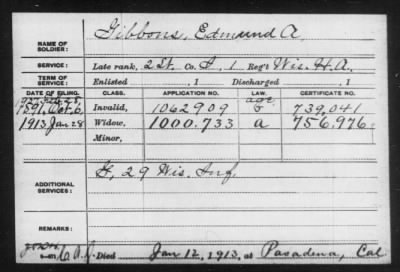 NAME OF SOLDIER: Gibbons, Edmund A.
SERVICE: Late rank, 2 Lt. Co. I, 1 Reg't Wis. H.A.
TERM OF SERVICE: Enlisted , 1 Discharged , 1
DATE OF FILING. CLASS. APPLICATION NO. LAW. CERTIFICATE NO.
age
1891, Oct. 6, Invalid, 1062909 739,041
1913 Jan 28 Widow, 1000.733 a 756,976
Minor,
ADDITIONAL SERVICES: G, 29 Wis. Inf.
REMARKS:
Died Jan 12, 1913, at Pasadena, Cal